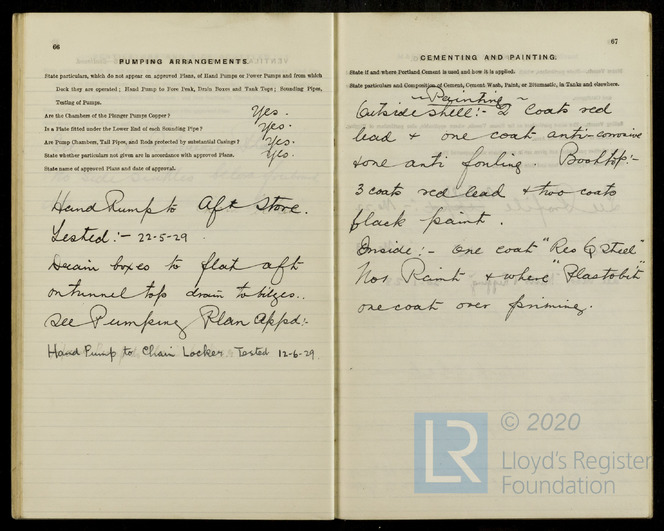 66
PUMPING ARRANGEMENTS.
State particulars, which do not appear on approved Plans, of Hand Pumps or Power Pumps and from which
Deck they are operated; Hand Pump to Fore Peak, Drain Boxes and Tank Tops; Sounding Pipes,
Testing of Pumps.
Are the Chambers of the Plunger Pumps Copper? Yes.
Is a Plate fitted under the Lower End of each Sounding Pipe? Yes.
Are Pump Chambers, Tail Pipes, and Rods protected by substantial Casings? Yes.
State whether particulars not given are in accordance with approved Plans. Yes.
State name of approved Plans and date of approval.
Hand Pump to Aft Store.
Tested:- 22-5-29
Drain boxes to flat aft
on tunnel top drain to bilges..
see Pumping Plan Appd:-
Hand Pump to Chain Locker Tested 12-6-29.
67
CEMENTING AND PAINTING.
State if and where Portland Cement is used and how it is applied.
State particulars and Composition of Cement, Cement Wash, Paint, or Bitumastic, in Tanks and elsewhere.
~ Painting ~
Outside shell:- 2 coats red
lead + one coat anti-corrosive
+ one anti fouling. Boottop:-
3 coats red lead + two coats
black paint.
Inside:- one coat "Res Q Steel"
Nos Paint + where "Plastobit"
one coat over priming.
LR
© 2020
Lloyd's Register
Foundation